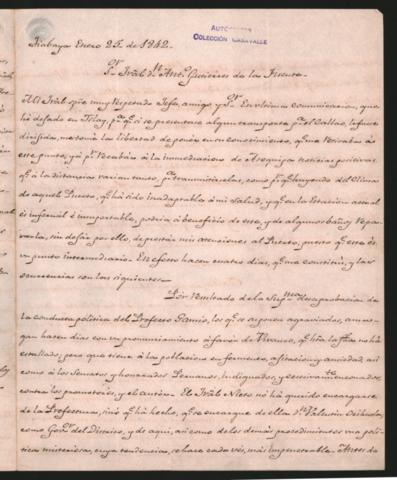 AUTOGRAFOS
COLECCIÓN CARAVALLE
Tiabaya Enero 25. de 1842.
Sr. Gral. Dn. Anto. Gutierres de las Fuentes.
Mi Gral. que muy Respetado Jefe, amigo y Sr. En ultima comunicacion, que
há dejado en Yslay, pa. qe. si se presentase algun transporte pa. el Callao, le fuese
dirijida, me tomé la libertad de poner en su conocimiento, qe. me Retiraba á
este punto, ya pr. Recabar á la inmediacion de Arequipa noticias positivas
qe. á la distancia varian tanto, pa. transmitirselas, como pr. qe. huyendo del Clima
de aquel Puerto, qe. há sido inadaptable á mi salud, y qe. en la Estacion actual
és infernal é insoportable, podria á beneficio de este, y de algunos baños Repa-
rarla, sin dejar por ello, de prestar mis atenciones al Puerto, puesto qe. este és
un punto intermediario. En efecto hacen cuatro dias, qe. me constituí, y las
ocurrencias son las siguientes.
Por Resultado de la Supma. desaprobacion de
la conducta politica del Prefecto Gamio, los qe. se suponen agraviados, amena-
gan hacen dias con un pronunciamiento á favor de Vivanco, qe. hta. la fha. no há
estallado; pero que tiene á las poblaciones en fermento, afliccion y ansiedad, asi
como á los Sensatos y honrados Peruanos, indignados, y excesivamte. enconados
contra los promotores, y el autor. El Gral. Nieto no há querido encargarse
de la Prefectura, sinó qe. há hecho, qe. se encargue de ella Dn. Valentin
como Gobr. del Distrito, y de aqui, asi como de los demás procedimientos una poli-
tica misteriosa, cuya tendencia, se hace cada vés, más impenetrable. Antes de